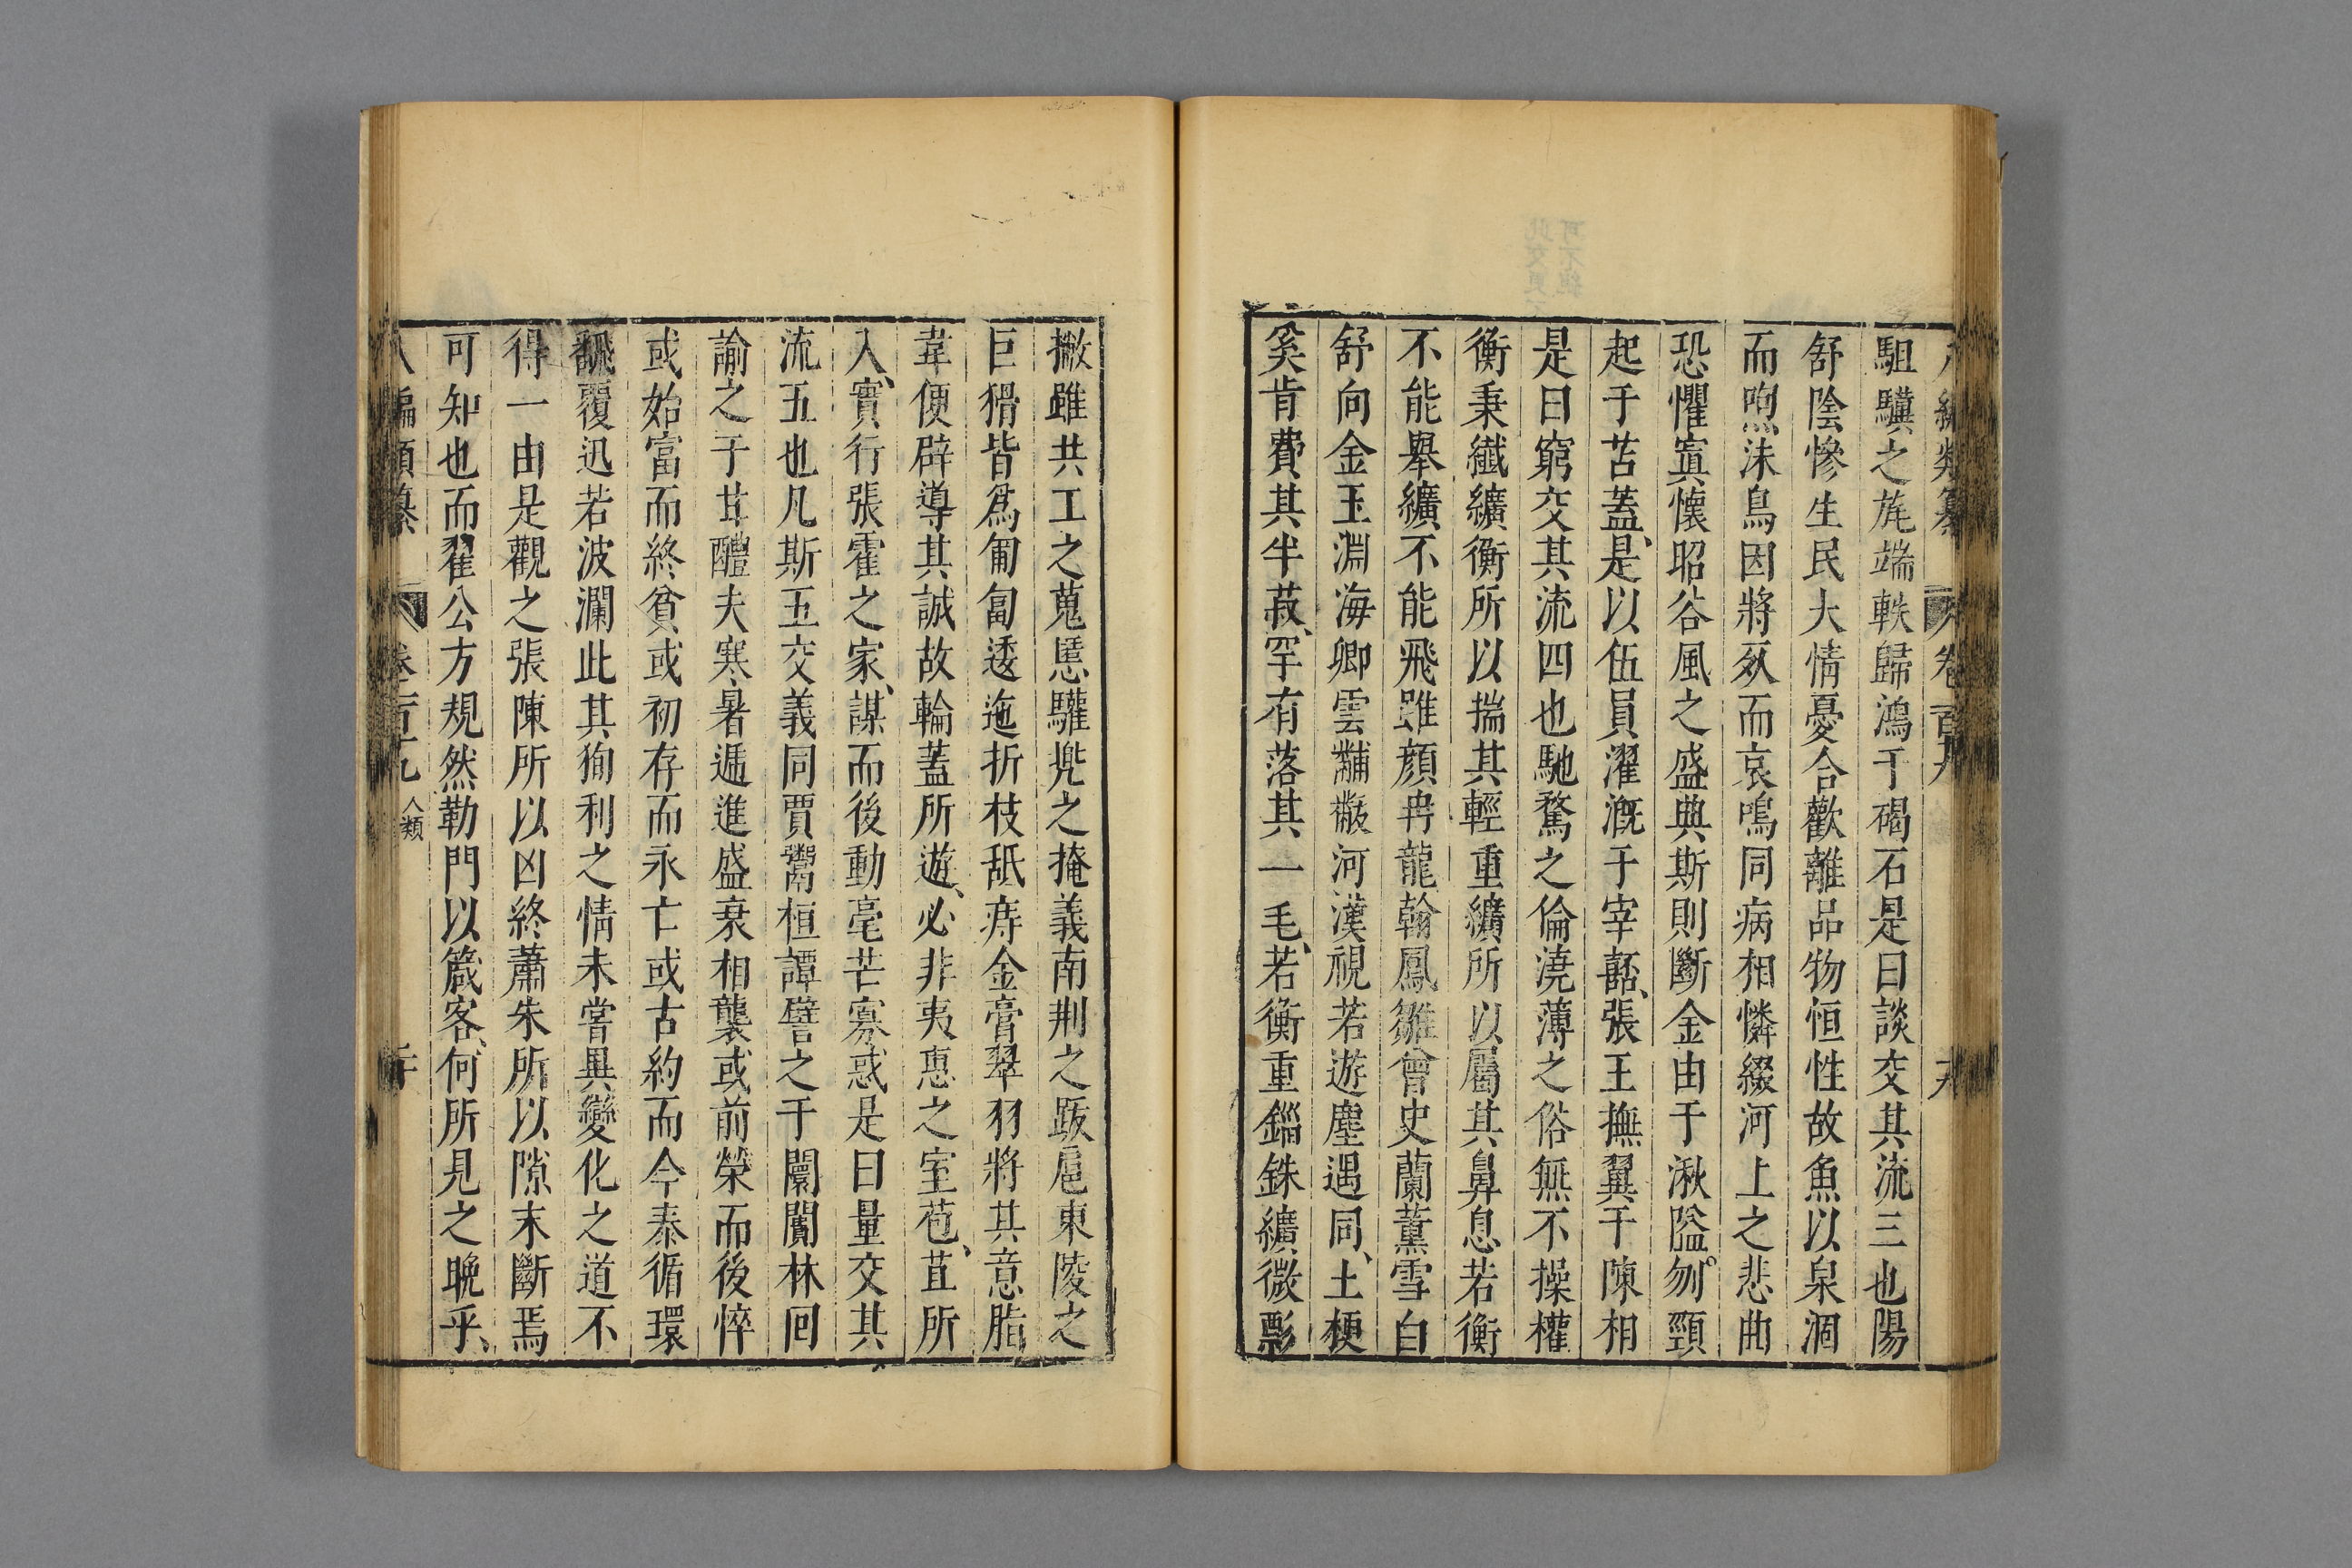 八編類纂 卷百九 十九
駔驥之旄端軼歸鴻于碣石是曰談交其流三也陽
舒陰慘生民大情憂合歡離品物恒性故魚以泉涸
而呴沫鳥因將死而哀鳴同病相憐綴河上之悲曲
恐懼寘懷昭谷風之盛典斯則斷金由于湫隘刎頸
起于苫蓋是以伍員濯溉于宰嚭張王撫翼于陳相
是曰窮交其流四也馳騖之倫澆薄之俗無不操權
衡秉纖纊衡所以揣其輕重纊所以屬其鼻息若衡
不能舉纊不能飛雖顏冉龍翰鳳雛曾史蘭薰雪白
舒向金玉淵海卿雲黼黻河漢視若遊塵遇同土梗
奚肯費其半菽罕有落其一毛若衡重錙銖纊微彯
撇雖共工之蒐慝驩兜之掩義南荆之跋扈東陵之
巨猾皆爲匍匐逶迤折枝舐痔金膏翠羽將其意脂
韋便辟導其誠故輪蓋所遊必非夷惠之室苞苴所
入實行張霍之家謀而後動毫芒寡惑是曰量交其
流五也凡斯五交義同賈鬻桓譚譬之于闤闠林囘
諭之于甘醴夫寒暑遞進盛衰相襲或前榮而後悴
或始富而終貧或初存而永亡或古約而今泰循環
飜覆迅若波瀾此其狥利之情未嘗異變化之道不
得一由是觀之張陳所以凶終蕭朱所以隙末斷焉
可知也而翟公方規然勒門以箴客何所見之晚乎
八編類纂 卷百九 人類 二十